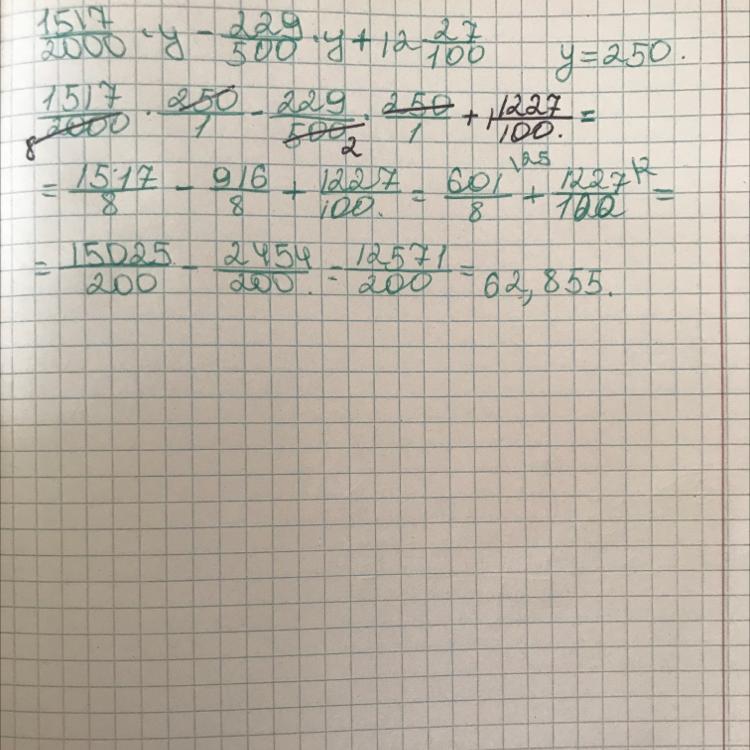 1517/2000 · y - 229/500 · y + 12 27/100 y = 250.
1517/2000 8 · 250/1 - 229/500 2 · 250/1 + 1227/100. =
= 1517/8 - 916/8 + 1227/100. = 601/8 \25 + 1227/100 |2 =
= 15025/200 - 2454/200. = 12571/200 = 62,855.